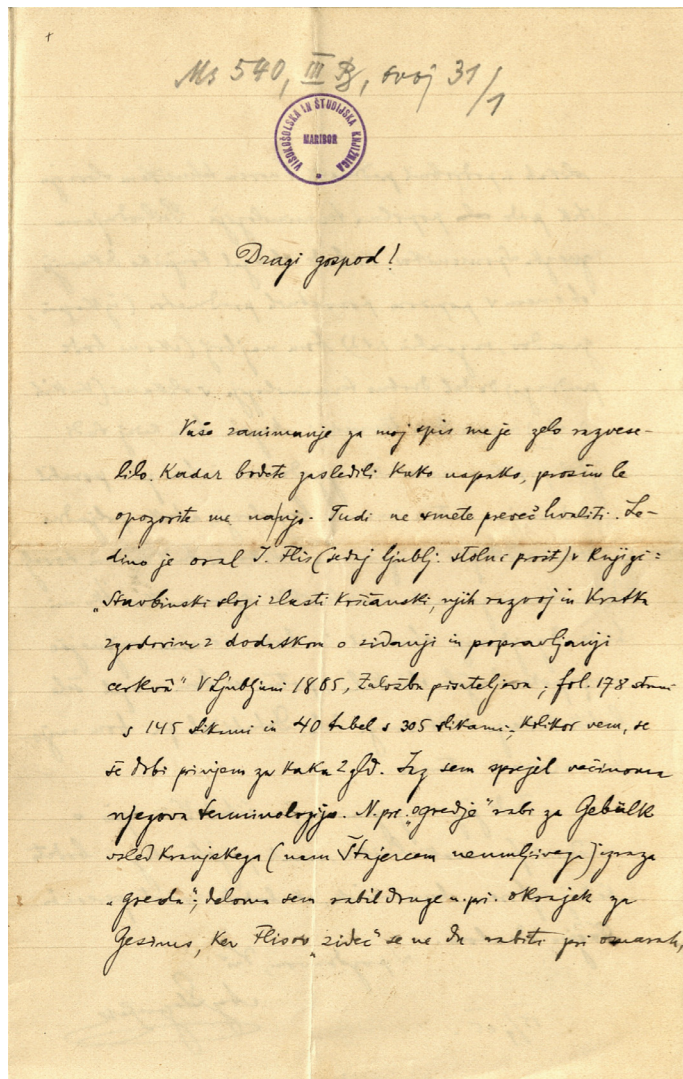 Ms 540, III B, ovoj 31/1
VISOKOŠOLSKA IN ŠTUDIJSKA KNJIŽNICA
MARIBOR
Dragi gospod!
Vaše zanimanje za moj spis me je zelo razvese-
lilo. Kadar bodete zasledili kako napako, prosim le
opozorite me nanjo. Tudi ne smete preveč hvaliti. Le-
dino je oral J. Flis (sedaj ljublj. stolni prošt) v knjigi:
"Stavbinski slogi zlasti krščanski, njih razvoj in kratka
zgodovina z dodatkom o zidanji in popravljanji
cerkvâ" V Ljubljani 1885, Založba pisateljeva, fol. 178 strani
s 145 slikami in 40 tabel s 305 slikami. Kolikor vem, se
še dobi pri njem za kaka 2 gld. Jaz sem sprejel večinoma
njegovo terminologijo. N.pr. "ogredje" rabi za Gebälk
vsled kranjskega (nam Štajercem neumljivega) izraza
"greda"; deloma sem rabil druge n.pr. okrajek za
Gesims, ker Flisov "zidec" se ne da rabiti pri omarah,